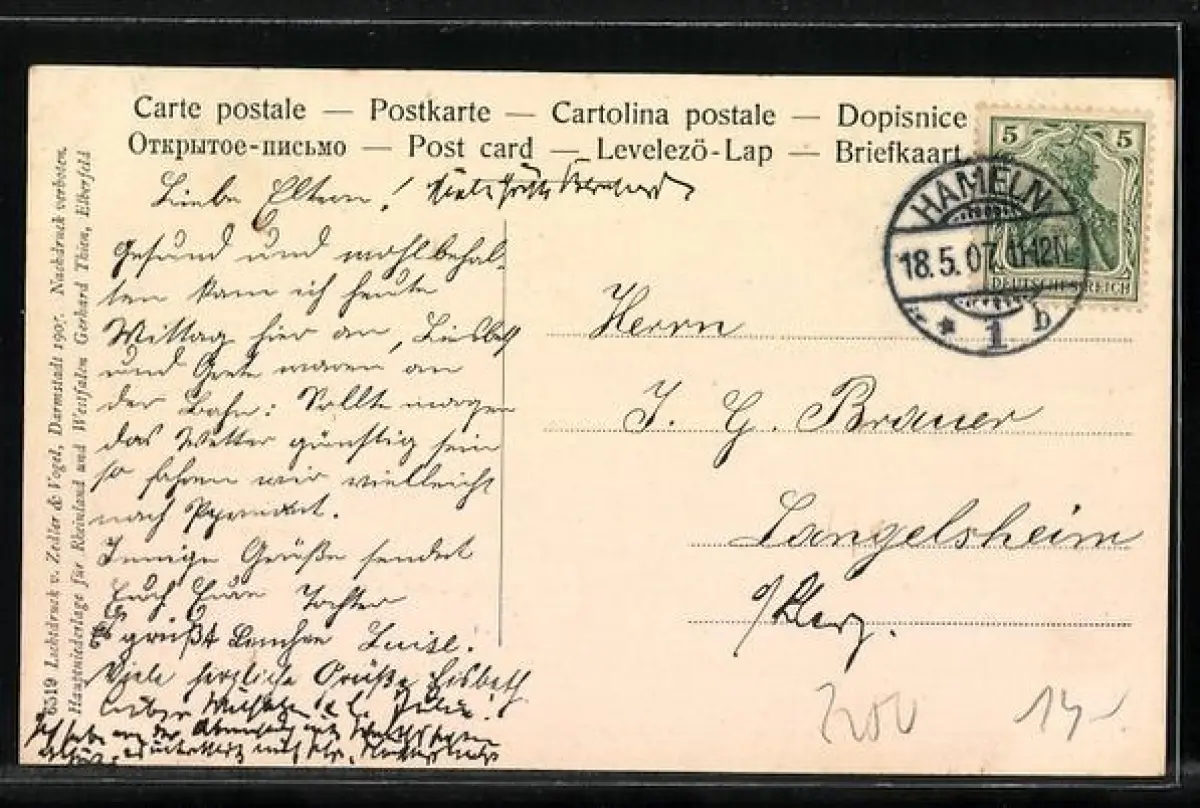 Carte postale — Postkarte — Cartolina postale — Dopisnice
Открытое-письмо — Post card — Levelező-Lap — Briefkaart
5 5
DEUTSCHES REICH
HAMELN
18.5.07. 11-12N.
* 1 b
Liebe Eltern!
Gesund und wohlbehal-
ten kam ich heute
Mittag hier an, Liesbeth
und Grete waren an
der Bahn. Sollte morgen
das Wetter günstig sein
so fahren wir vielleicht
nach Pyrmont.
Innige Grüße sendet
Euch Eure Tochter
Luise.
Viele herzliche Grüße Lisbeth
Herrn
J. G. Brauer
Langelsheim
a/Harz.
6519 Lichtdruck v. Zedler & Vogel, Darmstadt 1907. Nachdruck verboten.
Hauptniederlage für Rheinland und Westfalen Gerhard Thien, Elberfeld
14,-